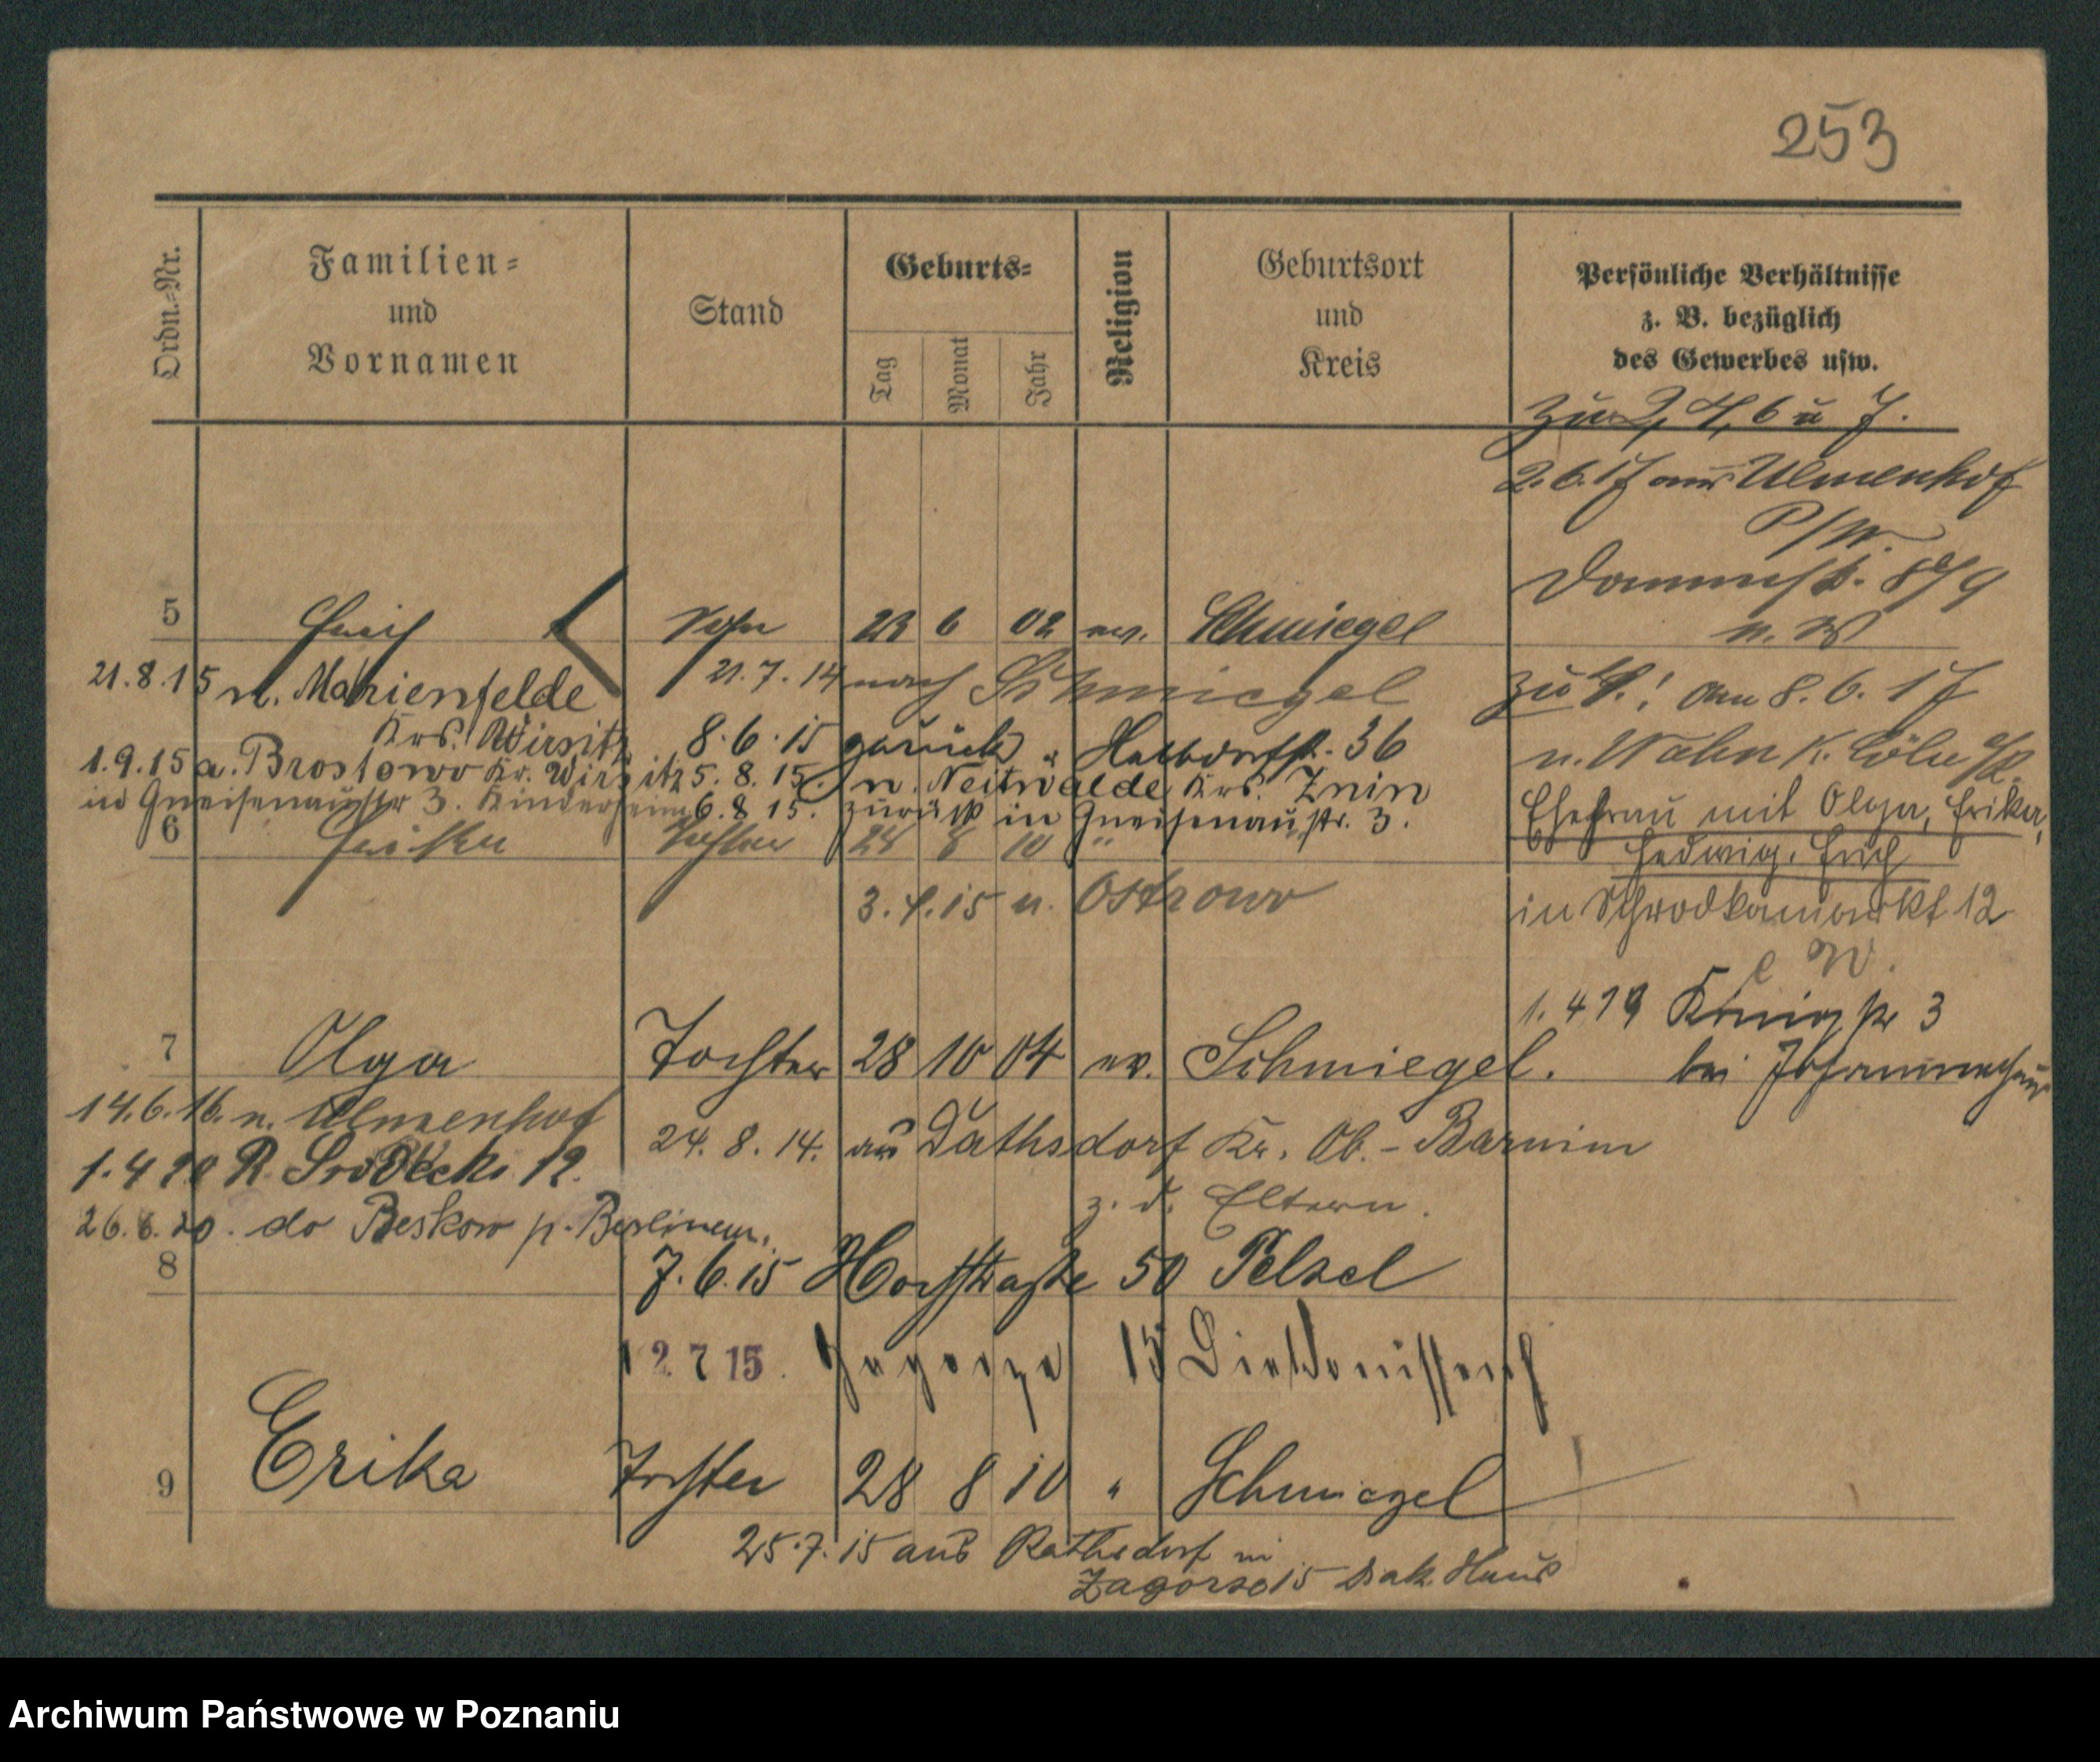 253
Ordn.=Nr.
Familien=
und
Vornamen
Stand
Geburts=
Tag
Monat
Jahr
Religion
Geburtsort
und
Kreis
Persönliche Verhältnisse
z. B. bezüglich
des Gewerbes usw.
zu 2, 4, 6 u 7.
2.6.17 aus Ulmenhof
P/W.
8/9
n. W
5 Erich Sohn 23 6 02 ev. Schmiegel
21.7.14 nach Schmiegel
21.8.15 n. Marienfelde
Krs. Wirsitz
8.6.15 zurück Halbdorfstr. 36
1.9.15 a. Brostowo Kr. Wirsitz 5.8.15. n. Krs. Znin
in Gneisenaustr 3. Kinderheim 6.8.15. zurück in Gneisenaustr. 3.
zu 4.! am 8.6.17
n. Wahn K. Cöln a/R.
Ehefrau mit Olga, Erika,
Hedwig, Erich
in Schrodkamarkt 12
W.
1.4 19 Königstr 3
bei
6 Erika Tochter 28 8 10 "
3.4.15 n. Ostrowo
7 Olga Tochter 28 10 04 ev. Schmiegel.
14.6.16. n. Ulmenhof
24.8.14. aus Dathsdorf Kr. Ob.-Barnim
z. d. Eltern.
1.4 20 R. Srodecki 12.
26.6.20. do Beskow p.
8
7.6.15 50
12 7 15. Zagorze 15 Diakonissenh
9 Erika Tochter 28 8 10 " Schmiegel
25.7.15 aus Rathsdorf in
Zagorze 15 Diak. Haus
Archiwum Państwowe w Poznaniu